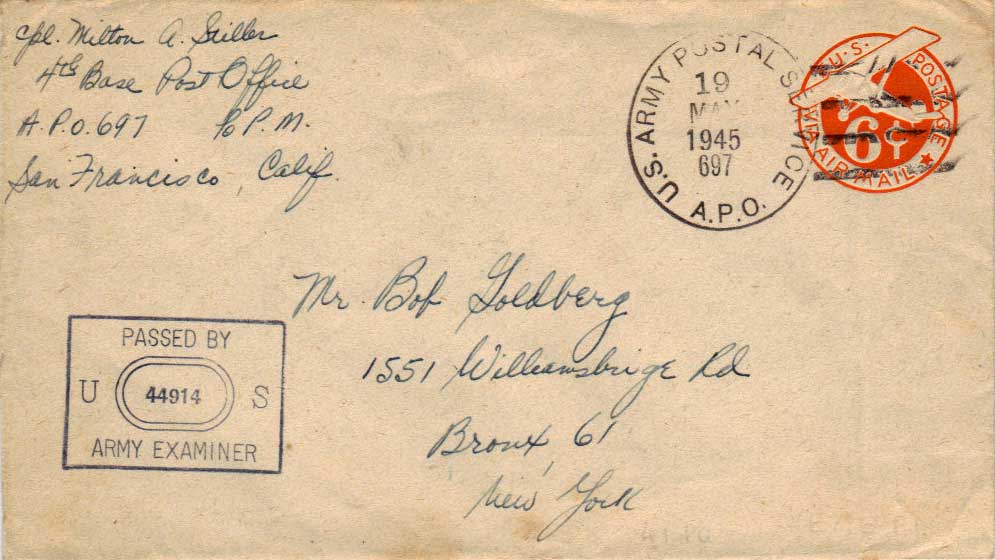 Cpl. Milton A. Stiller
4th Base Post Office
A.P.O. 697 % P.M.
San Francisco, Calif.
U.S. ARMY POSTAL SERVICE
19
MAY
1945
697
A.P.O.
U.S. POSTAGE
6¢
VIA AIR MAIL
Mr. Bob Goldberg
1551 Williamsbrige Rd
Bronx, 61
New York
PASSED BY
U 44914 S
ARMY EXAMINER